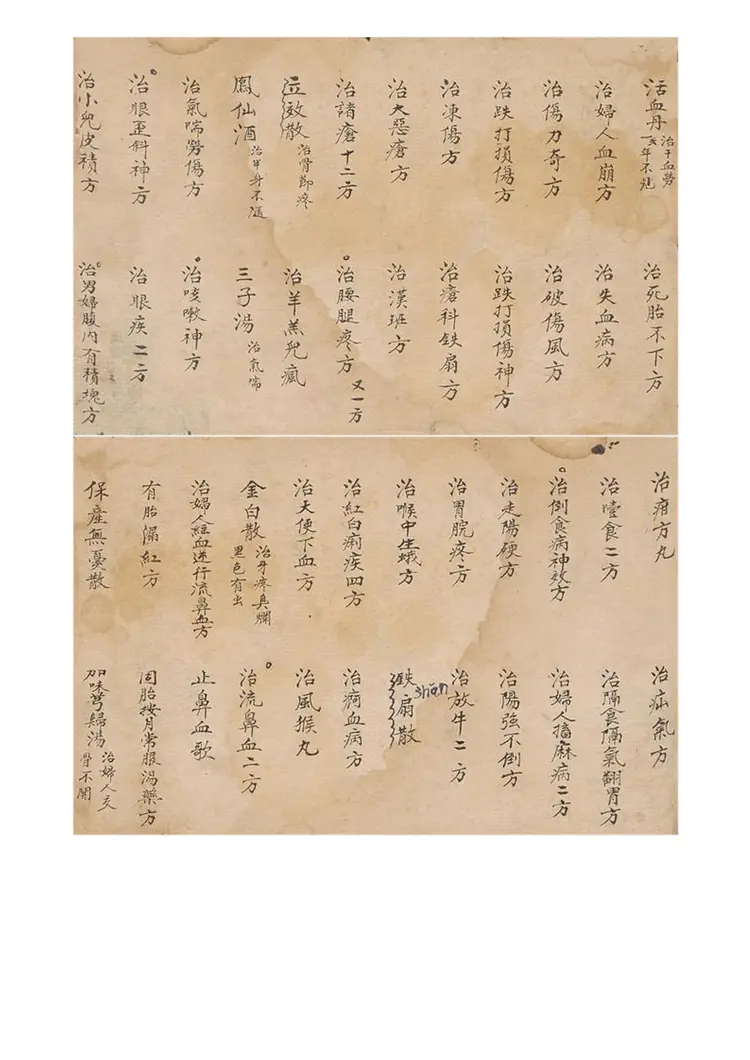 活血丹 治干血勞
亥年不見
治婦人血崩方
治傷力奇方
治跌打損傷方
治凍傷方
治大惡瘡方
治諸瘡十二方
立效散 治骨節疼
鳳仙酒 治半身不隨
治氣喘勞傷方
治眼歪斜神方
治小兒皮積方
治死胎不下方
治失血病方
治破傷風方
治跌打損傷神方
治瘡科鉄扇方
治漢班方
治腰腿疼方 又一方
治羊羔兒瘋
三子湯 治氣喘
治咳嗽神方
治眼疾二方
治男婦腹內有積塊方
治疳方丸
治噎食二方
治倒食病神效方
治走陽硬方
治胃脘疼方
治喉中生蛾方
治紅白痢疾四方
治大便下血方
金白散 治牙疼臭爛
黑色有虫
治婦人經血逆行流鼻血方
有胎漏紅方
保產無憂散
治疝氣方
治隔食隔氣翻胃方
治婦人搐麻病二方
治陽強不倒方
治放牛二方
鉄扇散 shān
治痾血病方
治風猴丸
治流鼻血二方
止鼻血歌
固胎按月常服湯藥方
加味芎歸湯 治婦人交
骨不開